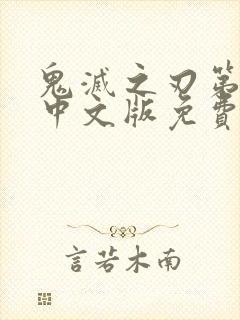 鬼滅之刃第
中文版免費
言若木南